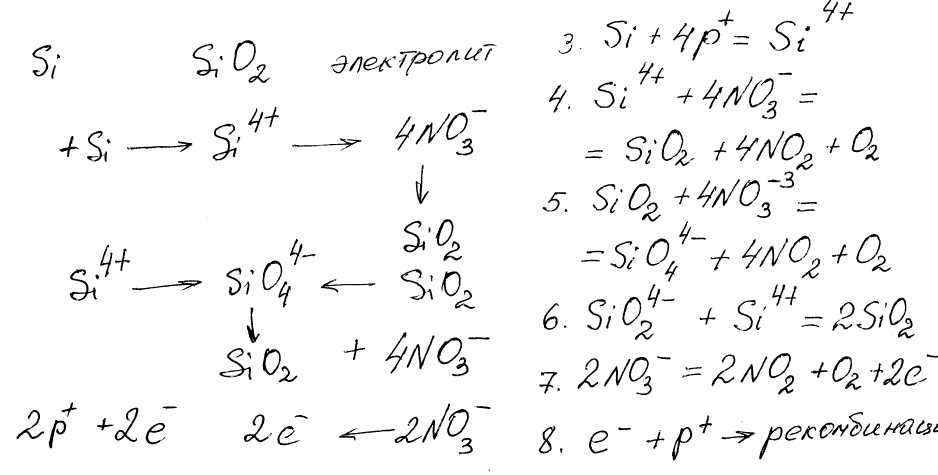 Si SiO₂ электролит
+Si → Si⁴⁺ → 4NO₃⁻
↓
SiO₂
Si⁴⁺ → SiO₄⁴⁻ ← SiO₂
↓
SiO₂ + 4NO₃⁻
2p⁺ +2e⁻ 2e⁻ ← 2NO₃⁻
3. Si + 4p⁺ = Si⁴⁺
4. Si⁴⁺ + 4NO₃⁻ =
= SiO₂ + 4NO₂ + O₂
5. SiO₂ + 4NO₃⁻³ =
= SiO₄⁴⁻ + 4NO₂ + O₂
6. SiO₂⁴⁻ + Si⁴⁺ = 2SiO₂
7. 2NO₃⁻ = 2NO₂ + O₂ + 2e⁻
8. e⁻ + p⁺ → рекомбинаци